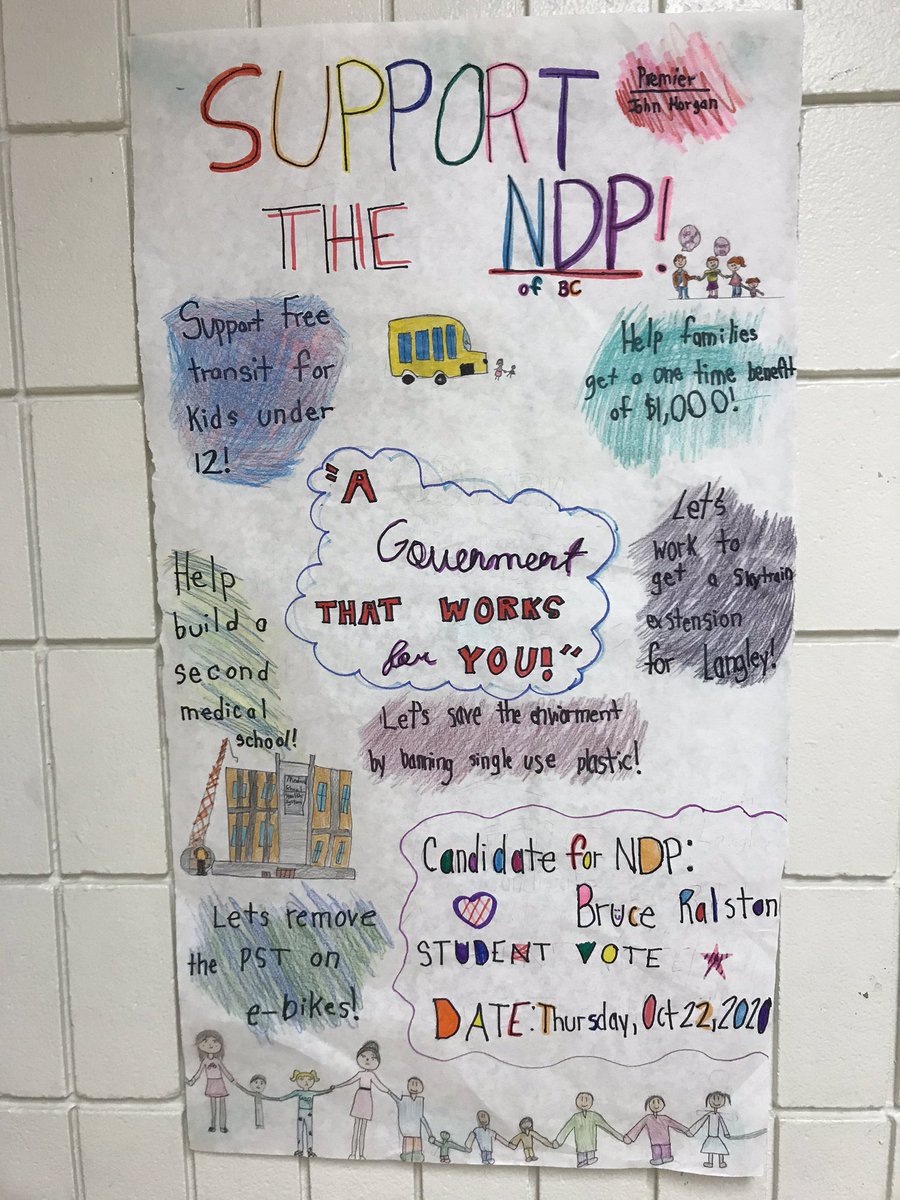 SUPPORT
THE NDP!
of BC
Premier
John Horgan
Support Free
transit for
Kids under
12!
Help families
get a one time benefit
of $1,000!
"A
Goverment
THAT WORKS
for YOU!"
Let's
work to
get a skytrain
exstension
for Langley!
Help
build a
second
medical
school!
Let's save the enviorment
by banning single use plastic!
Lets remove
the PST on
e-bikes!
Candidate for NDP:
Bruce Ralston
STUDENT VOTE
DATE: Thursday, Oct 22, 2020